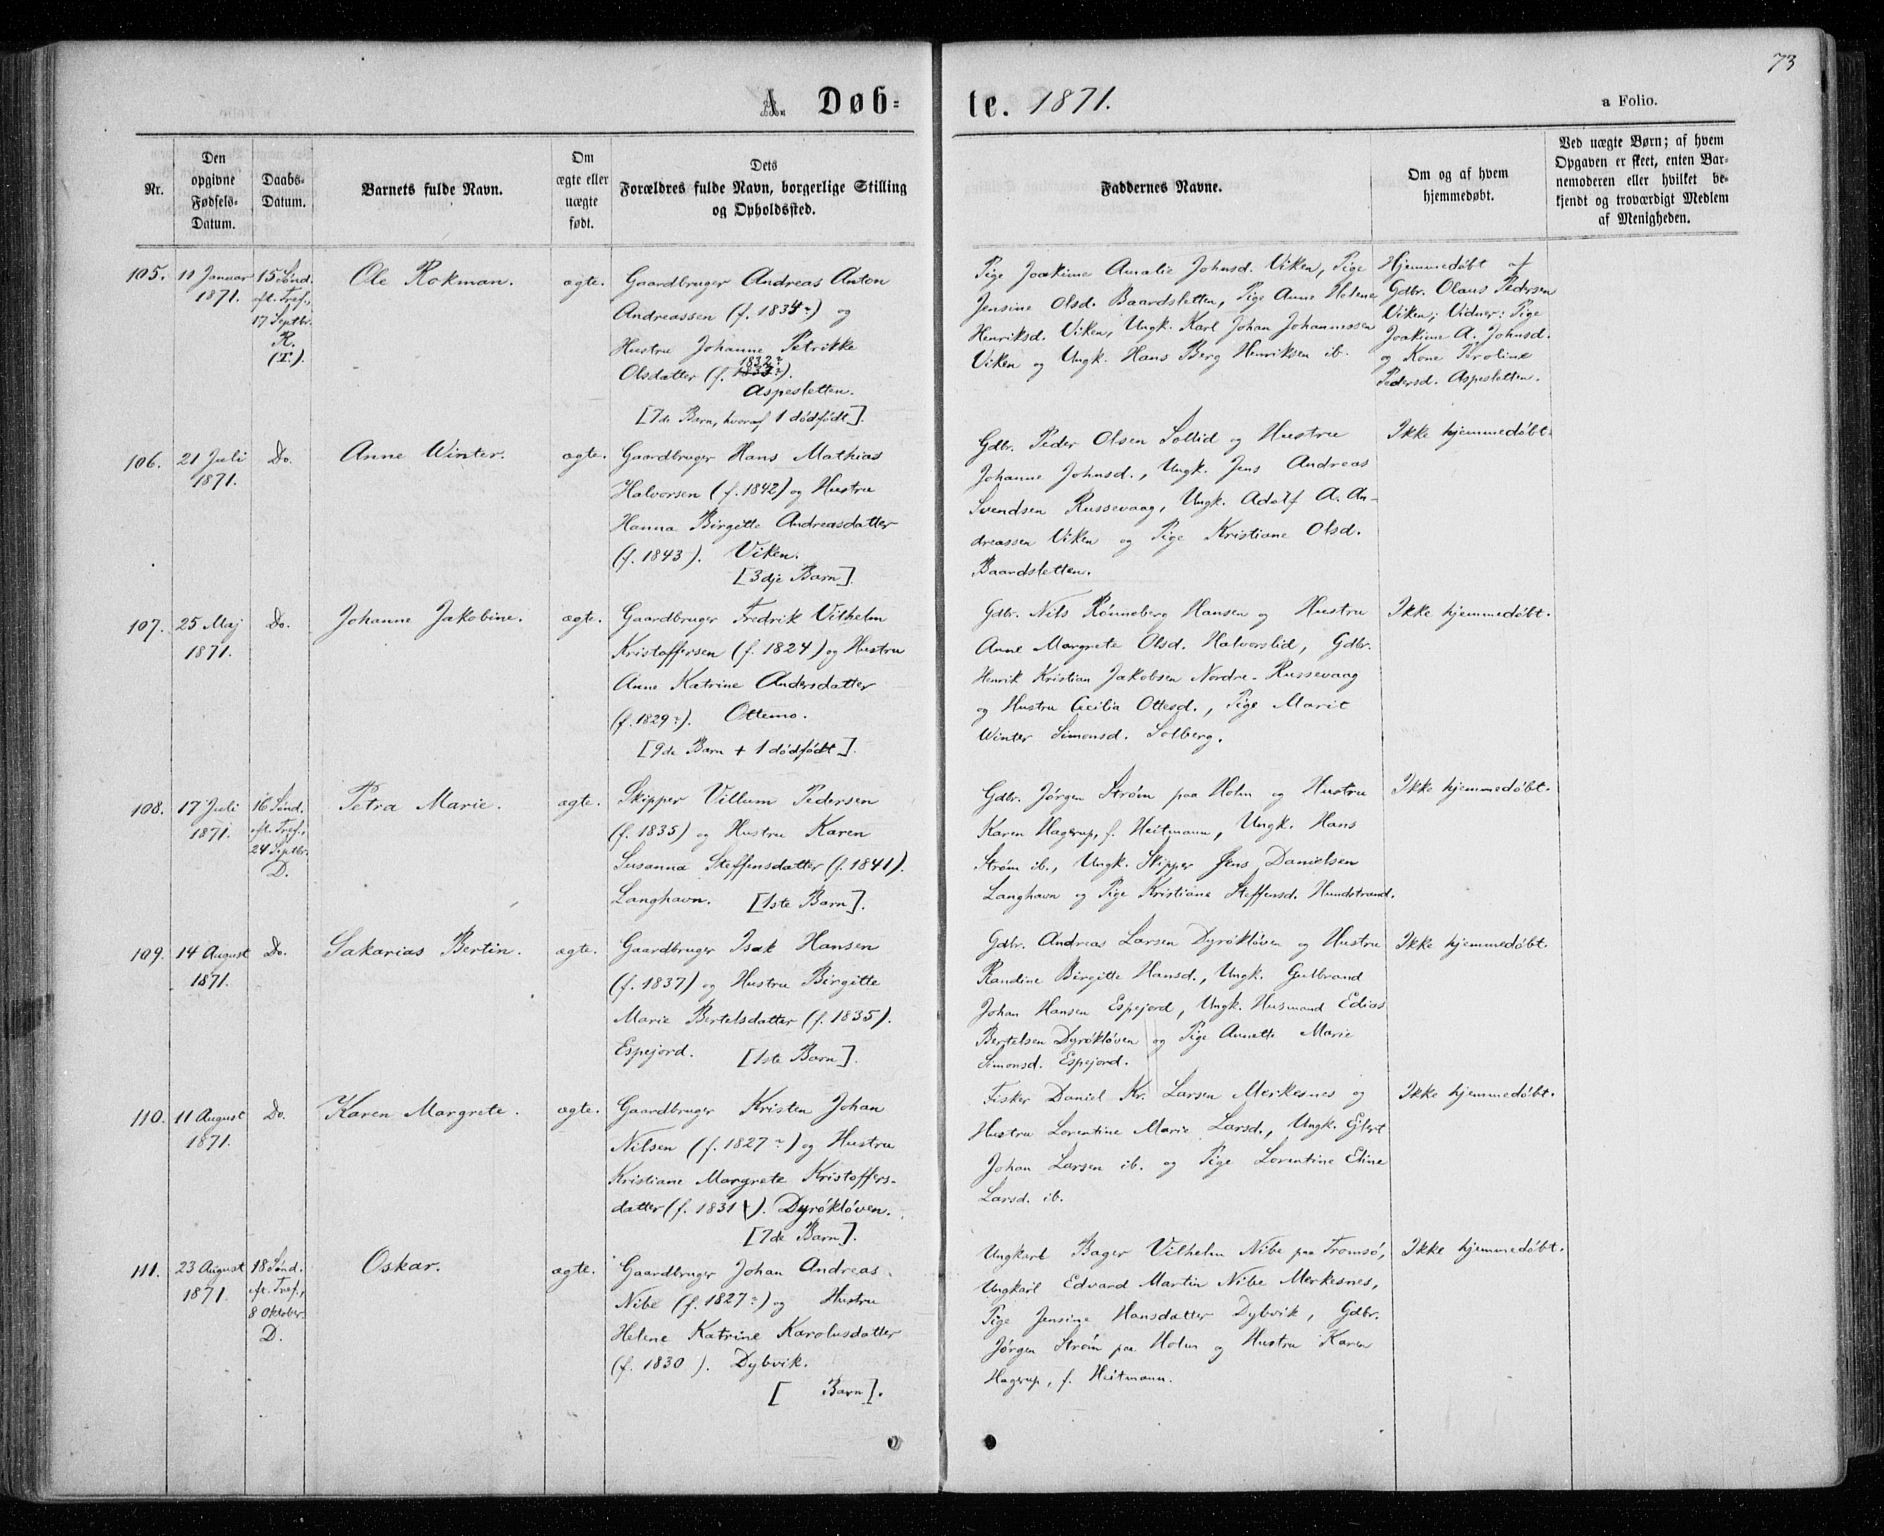 73
A. Døb=
te. 1871.
a Folio.
Nr.
Den
opgivne
Fødsels-
Datum.
Daabs-
Datum.
Barnets fulde Navn.
Om
ægte eller
uægte
født.
Dets
Forældres fulde Navn, borgerlige Stilling
og Opholdssted.
Faddernes Navne.
Om og af hvem
hjemmedøbt.
Ved uægte Børn; af hvem
Opgaven er skeet, enten Bar-
nemoderen eller hvilket be-
kjendt og troværdigt Medlem
af Menigheden.
105.
11 Januar
1871.
15 Sønd.
eft. Tref.,
17 Septbr.
R.
(T.).
Ole Rokman.
ægte.
Gaardbruger Andreas Anton
Andreassen (f. 1834?) og
Hustru Johanne Petrikke
1832?
Olsdatter (f. 1833?).
Aspesletten.
[7de Barn, hvoraf 1 dødfødt].
Pige Joakime Amalie Johnsd. Viken, Pige
Jensine Olsd. Baardsletten, Pige Anne Helene
Henriksd. Viken, Ungk. Karl Johan Johannessen
Viken og Ungk. Hans Berg Henriksen ib.
Hjemmedøbt af
Gdbr. Olaus Pedersen
Viken; Vidner: Pige
Joakime A. Johnsd.
og Kone Proline
Pedersd. Aspesletten.
106.
21 Juli
1871.
Do.
Anne Winter.
ægte.
Gaardbruger Hans Mathias
Halvorsen (f. 1842) og Hustru
Hanna Birgitte Andreasdatter
(f. 1843). Viken.
[3dje Barn].
Gdbr. Peder Olsen Sollid og Hustru
Johanne Johnsd., Ungk. Jens Andreas
Svendsen Russevaag, Ungk. Adolf A. An-
dreassen Viken og Pige Kristiane Olsd.
Baardsletten.
Ikke hjemmedøbt.
107.
25 Maj
1871.
Do.
Johanne Jakobine.
ægte.
Gaardbruger Fredrik Vilhelm
Kristoffersen (f. 1824) og Hustru
Anne Katrine Andersdatter
(f. 1829?). Ottemo.
[9de Barn + 1 dødfødt].
Gdbr. Nils Rønneberg Hansen og Hustru
Anne Margrete Olsd. Halvorslid, Gdbr.
Henrik Kristian Jakobsen Nordre-Russevaag
og Hustru Cecilia Ottesd., Pige Marit
Winter Simonsd. Solberg.
Ikke hjemmedøbt.
108.
17 Juli
1871.
16 Sønd.
eft. Tref.,
24 Septbr.
D.
Petra Marie.
ægte.
Skipper Villum Pedersen
(f. 1835) og Hustru Karen
Susanna Steffensdatter (f. 1841).
Langhavn. [1ste Barn].
Gdbr. Jørgen Strøm paa Holm og Hustru
Karen Hagerup, f. Heitmann, Ungk. Hans
Strøm ib., Ungk. Skipper Jens Danielsen
Langhavn og Pige Kristiane Steffensd. Hundstrand.
Ikke hjemmedøbt.
109.
14 August
1871.
Do.
Sakarias Bertin.
ægte.
Gaardbruger Isak Hansen
(f. 1837) og Hustru Birgitte
Marie Bertelsdatter (f. 1835).
Espejord. [1ste Barn].
Gdbr. Andreas Larsen Dyrökløven og Hustru
Randine Birgitte Hansd., Ungk. Gulbrand
Johan Hansen Espejord, Ungk. Husmand Edias
Bertelsen Dyrökløven og Pige Annette Marie
Simonsd. Espejord.
Ikke hjemmedøbt.
110.
11 August
1871.
Do.
Karen Margrete.
ægte.
Gaardbruger Kristen Johan
Nilsen (f. 1827?) og Hustru
Kristiane Margrete Kristoffers-
datter (f. 1831). Dyrökløven.
[7de Barn].
Fisker Daniel Kr. Larsen Merkesnes og
Hustru Lorentine Marie Larsd., Ungk. Eilert
Johan Larsen ib. og Pige Lorentine Eline
Larsd. ib.
Ikke hjemmedøbt.
111.
23 August
1871.
18 Sønd.
eft. Tref.,
8 Oktober.
D.
Oskar.
ægte.
Gaardbruger Johan Andreas
Nibe (f. 1827?) og Hustru
Helene Katrine Karolusdatter
(f. 1830). Dybvik.
[ Barn].
Ungkarl Bager Vilhelm Nibe paa Tromsø,
Ungkarl Edvard Martin Nibe Merkesnes,
Pige Jensine Hansdatter Dybvik, Gdbr.
Jørgen Strøm paa Holm og Hustru Karen
Hagerup, f. Heitmann.
Ikke hjemmedøbt.